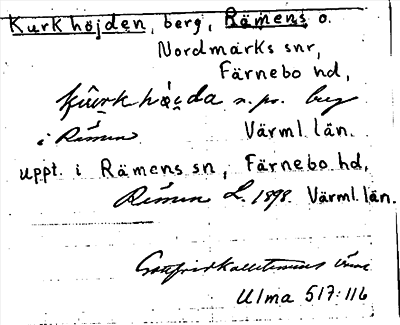 Kurkhöjden, berg, Rämens o.
Nordmarks snr,
Färnebo hd,
kû̀rk hö́ɡda n. pr. berg
i Rämen Värml. län.
uppt. i Rämens sn, Färnebo hd,
Rämen L. 1898. Värml. län.
Gottfrid Kallstenius
Ulma 517:116